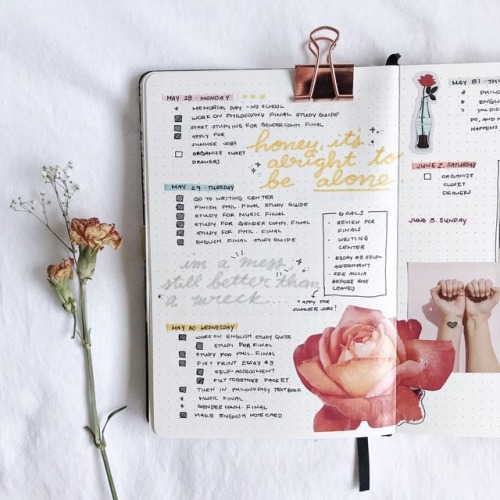 MAY 28 MONDAY
MEMORIAL DAY - NO SCHOOL
WORK ON PHILOSOPHY FINAL STUDY GUIDE
START STUDYING FOR GENDER COMM. FINAL
APPLY FOR
SUMMER JOBS
ORGANIZE CLOSET
DRAWERS
honey, it's
alright to
be alone
MAY 29 TUESDAY
GO TO WRITING CENTER
FINISH PHIL. FINAL STUDY GUIDE
STUDY FOR MUSIC FINAL
STUDY FOR GENDER COMM. FINAL
STUDY FOR PHIL. FINAL
ENGLISH FINAL STUDY GUIDE
GOALS
- REVIEW FOR
FINALS
- WRITING
CENTER
- ESSAY #3 SELF-
ASSESSMENT
BEFORE SHE
LEAVES
* APPLY FOR
SUMMER JOBS!
im a mess
still better than
a wreck
MAY 30 WEDNESDAY
WORK ON ENGLISH STUDY GUIDE
STUDY FOR FINAL
STUDY FOR PHIL. FINAL
FIX + PRINT ESSAY #3
SELF-ASSESSMENT
PUT TOGETHER PACKET
TURN IN PHILOSOPHY TEXTBOOK
MUSIC FINAL
GENDER COMM. FINAL
MAKE ENGLISH NOTECARD
MAY 31 - TH
PHILO
ENGLIS
YOU DID
DO, AND
HAPPEN
JUNE 2 SATURDAY
ORGANIZE
CLOSET
DRAWERS
JUNE 3. SUNDAY